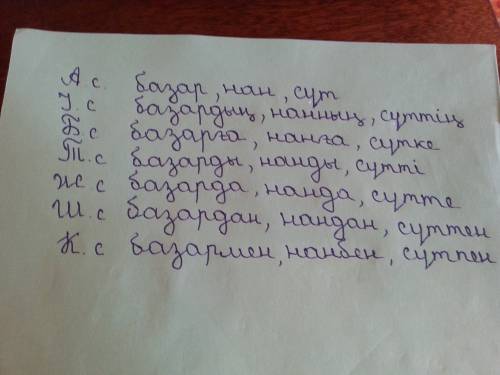 А. с. базар, нан, сүт
І. с базардың, нанның, сүттің
Б. с базарға, нанға, сүтке
Т. с базарды, нанды, сүтті
Ж. с базарда, нанда, сүтте
Ш. с базардан, наннан, сүттен
К. с базармен, нанбен, сүтпен